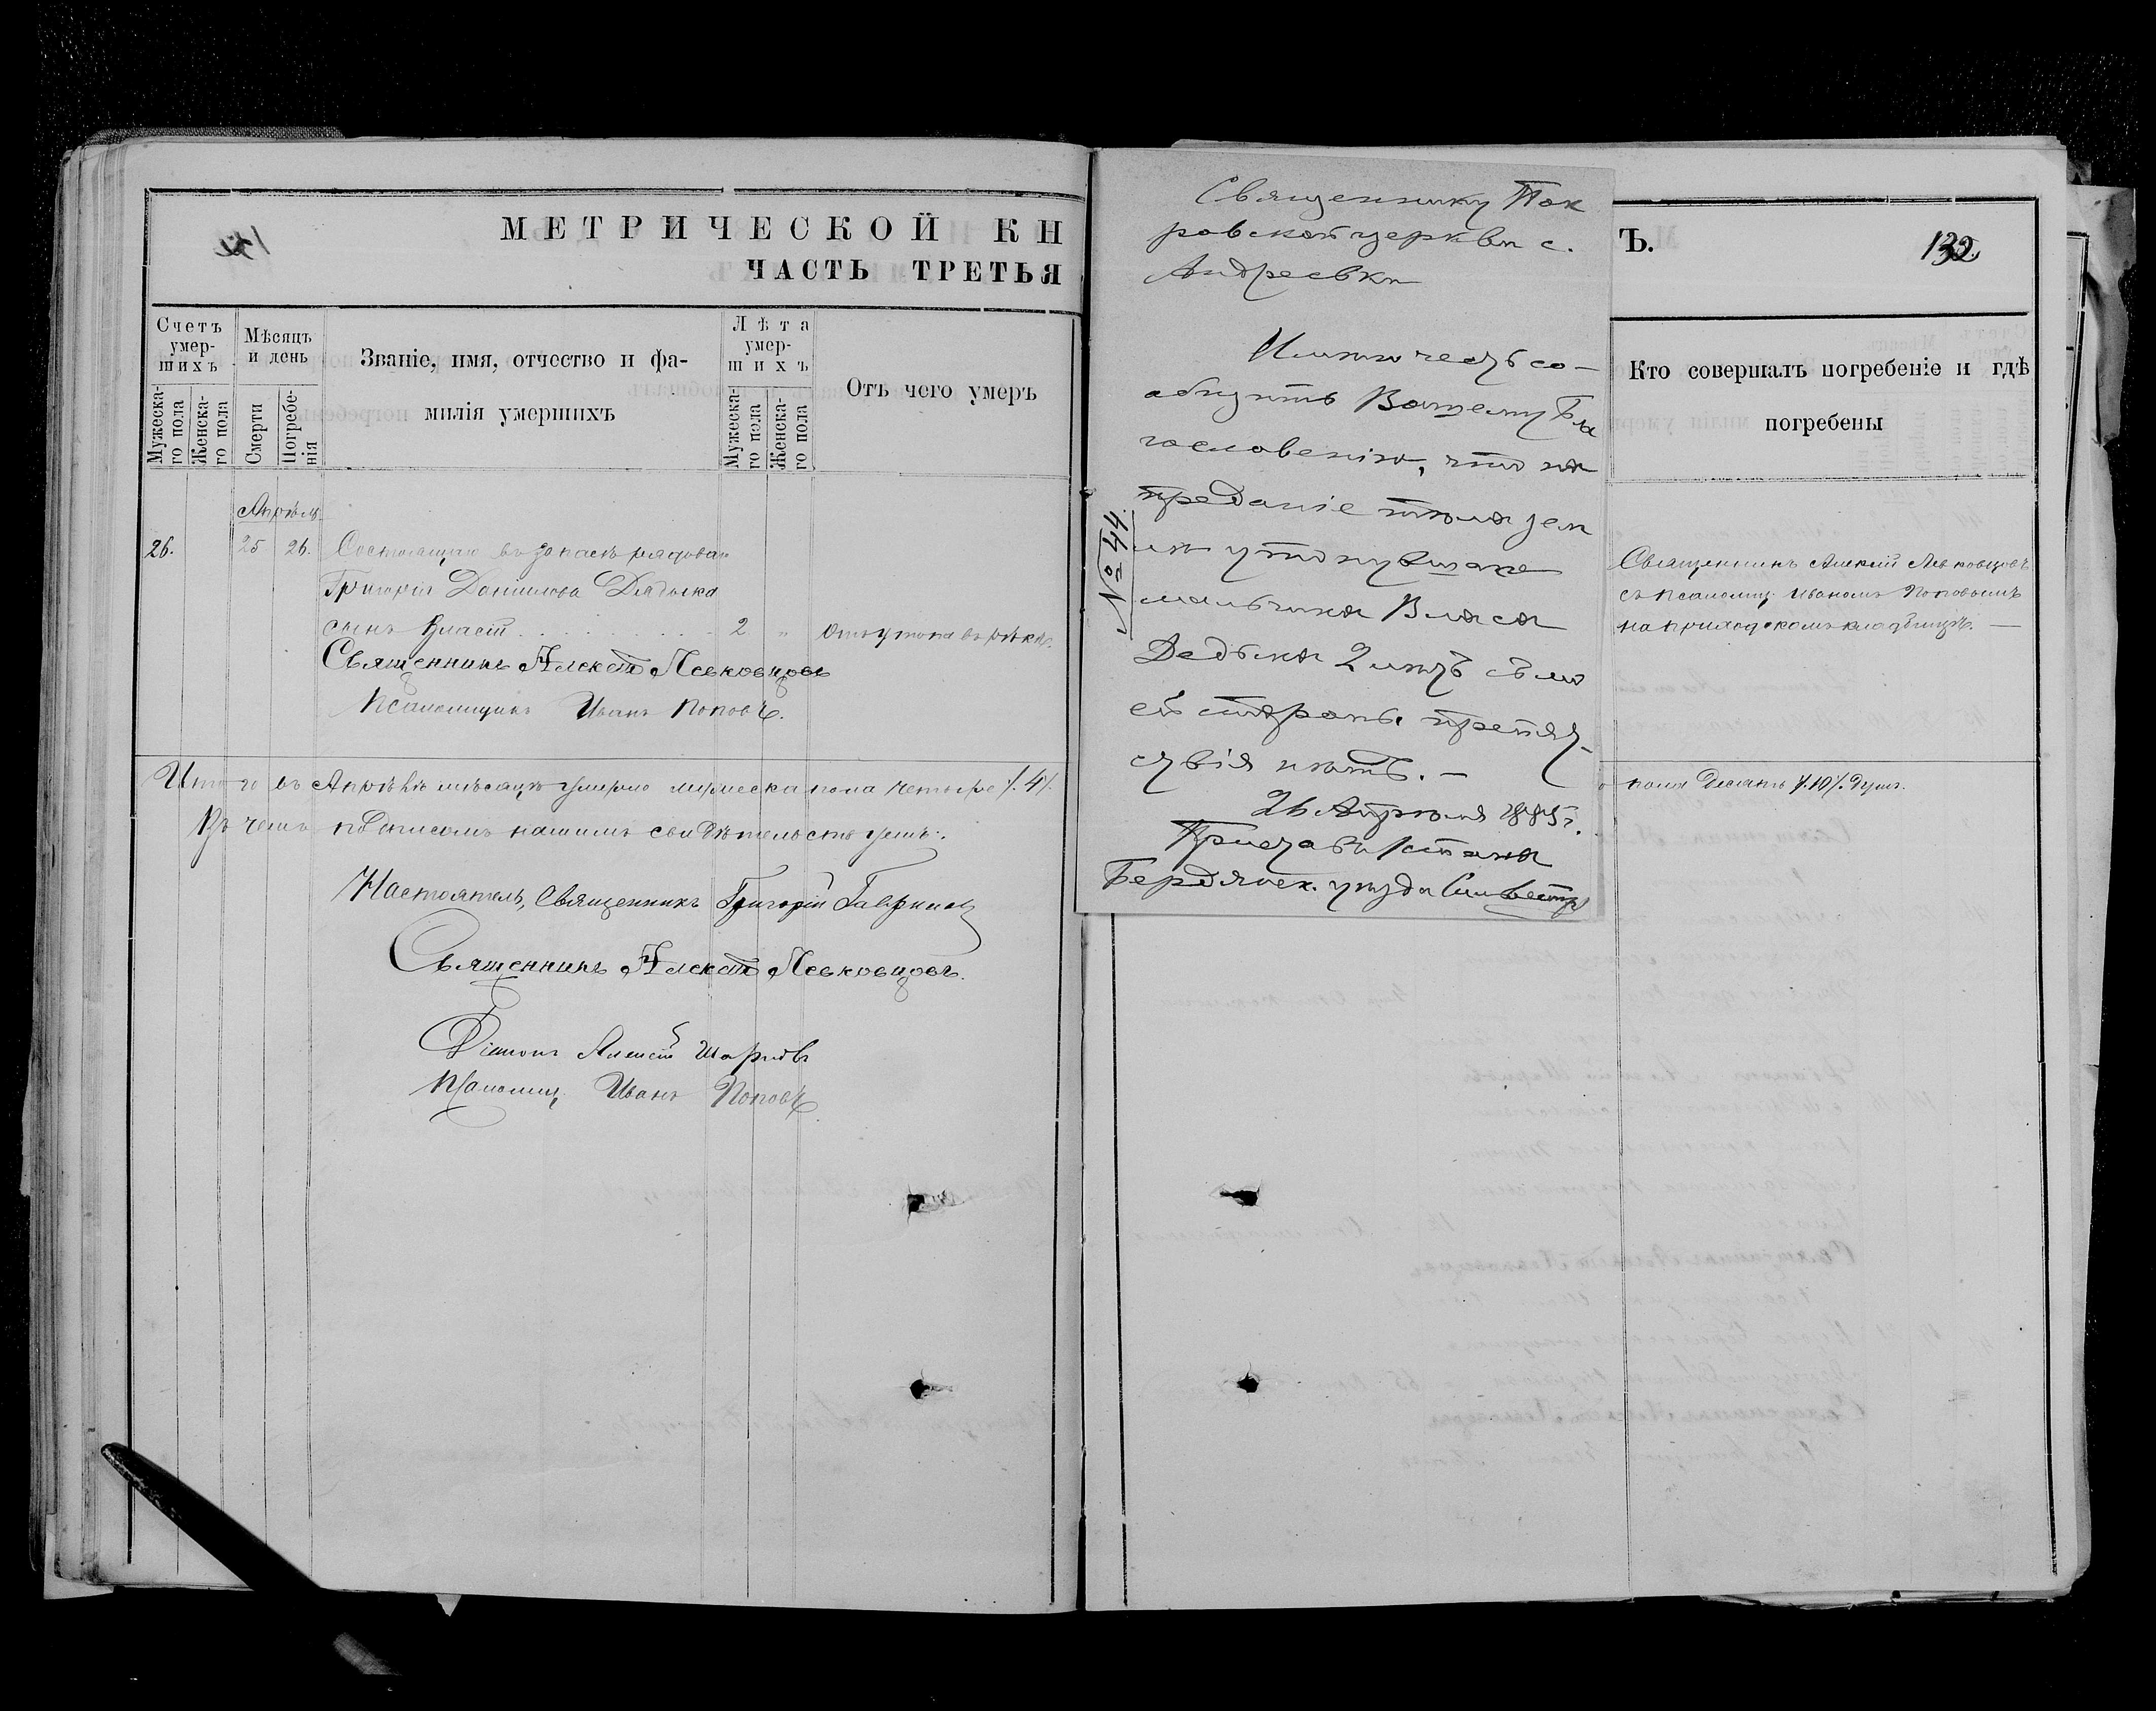 МЕТРИЧЕСКОЙ КН
ЧАСТЬ ТРЕТЬЯ
Счетъ умер-
шихъ
Мужеска-
го пола
Женска-
го пола
Мѣсяцъ
и день
Смерти
Погребе-
нія
Званіе, имя, отчество и фа-
милія умершихъ
Лѣта
умер-
шихъ
Мужеска-
го пола
Женска-
го пола
Отъ чего умеръ
Апрѣль
26. 25 26. Состоящаго въ запасѣ рядова
Григорія Даніилова Дядька
сынъ Власій 2 " утопа въ рѣкѣ.
Священникъ Алексій Левковцовъ
Псаломщикъ Иванъ Поповъ.
Итого въ Апрѣлѣ мѣсяцѣ умерло мужеска пола четыре /.4/.
Въ чемъ подписомъ нашимъ свидѣтельствуемъ:
Настоятель, Священникъ Григорій
Священникъ Алексій Левковцовъ.
Діаконъ Алексій
Псаломщ. Иванъ Поповъ
Священнику Пок
ровской церкви с.
Андреевки
Имѣю честь со-
общить Вашему Бла
гословенію, что на
преданіе тѣла зем
лѣ утонувшаго
мальчика Власа
Дедька 2 лѣтъ съ мо
ей стороны препят-
ствія нѣтъ. -
26 Апрѣля
Пристав 1 стана
Бердянск. уѣзда
№ 44.
Ъ.
132
Кто совершалъ погребеніе и гдѣ
погребены
Священникъ Алексій Левковцовъ
съ псаломщ. Иваномъ Поповымъ
на приходскомъ кладбищѣ. —
пола десять /.10/. душъ.